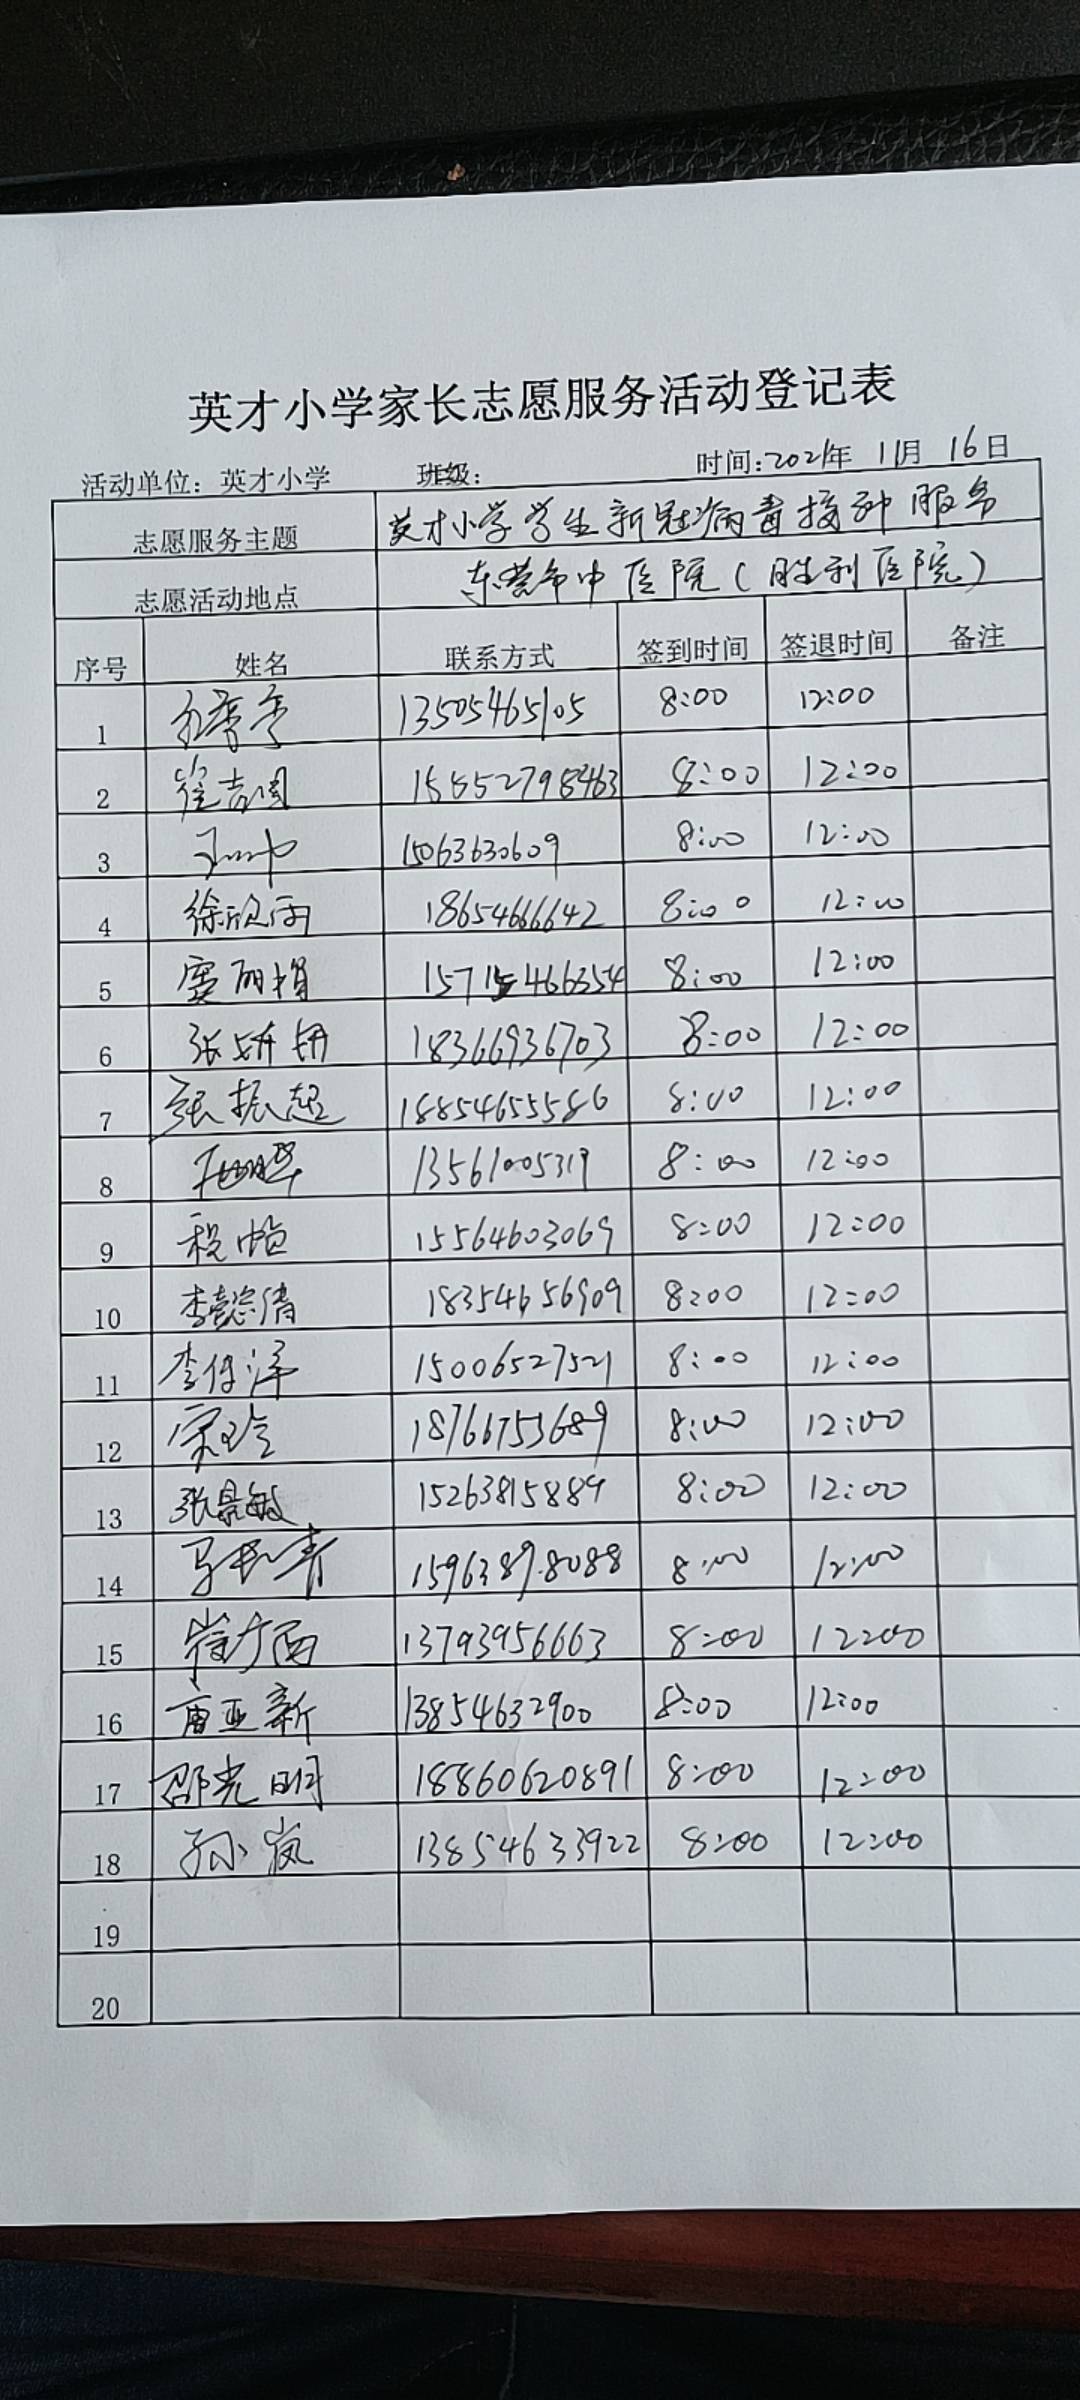 英才小学家长志愿服务活动登记表
活动单位：英才小学 班级： 时间：2021年 11月 16日
志愿服务主题 英才小学学生新冠病毒接种服务
志愿活动地点 东营市中医院（胜利医院）
序号 姓名 联系方式 签到时间 签退时间 备注
1 13505465105 8:00 12:00
2 崔吉国 15552798463 8:00 12:00
3 15063630609 8:00 12:00
4 徐欣雨 18654666642 8:00 12:00
5 窦丽娟 15715466354 8:00 12:00
6 张妍妍 18366936703 8:00 12:00
7 张振超 18854655586 8:00 12:00
8 13561005319 8:00 12:00
9 程 15564603069 8:00 12:00
10 李懿倩 18354656909 8:00 12:00
11 李保泽 15006527521 8:00 12:00
12 宋玲 18766753689 8:00 12:00
13 张景敏 15263815889 8:00 12:00
14 马 15963898088 8:00 12:00
15 崔广西 13793956663 8:00 12:00
16 唐亚新 13854632900 8:00 12:00
17 邵光明 18860620891 8:00 12:00
18 孙岚 13854633922 8:00 12:00
19
20